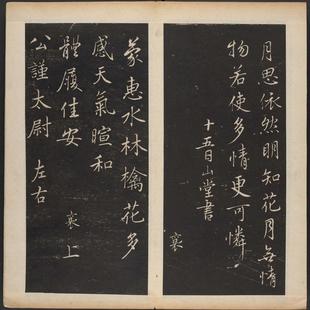 月思依然明知花月無情
物若使多情更可憐
十五日山堂書
襄
蒙惠水林檎花多
感天氣暄和
體履佳安
襄上
公謹太尉左右